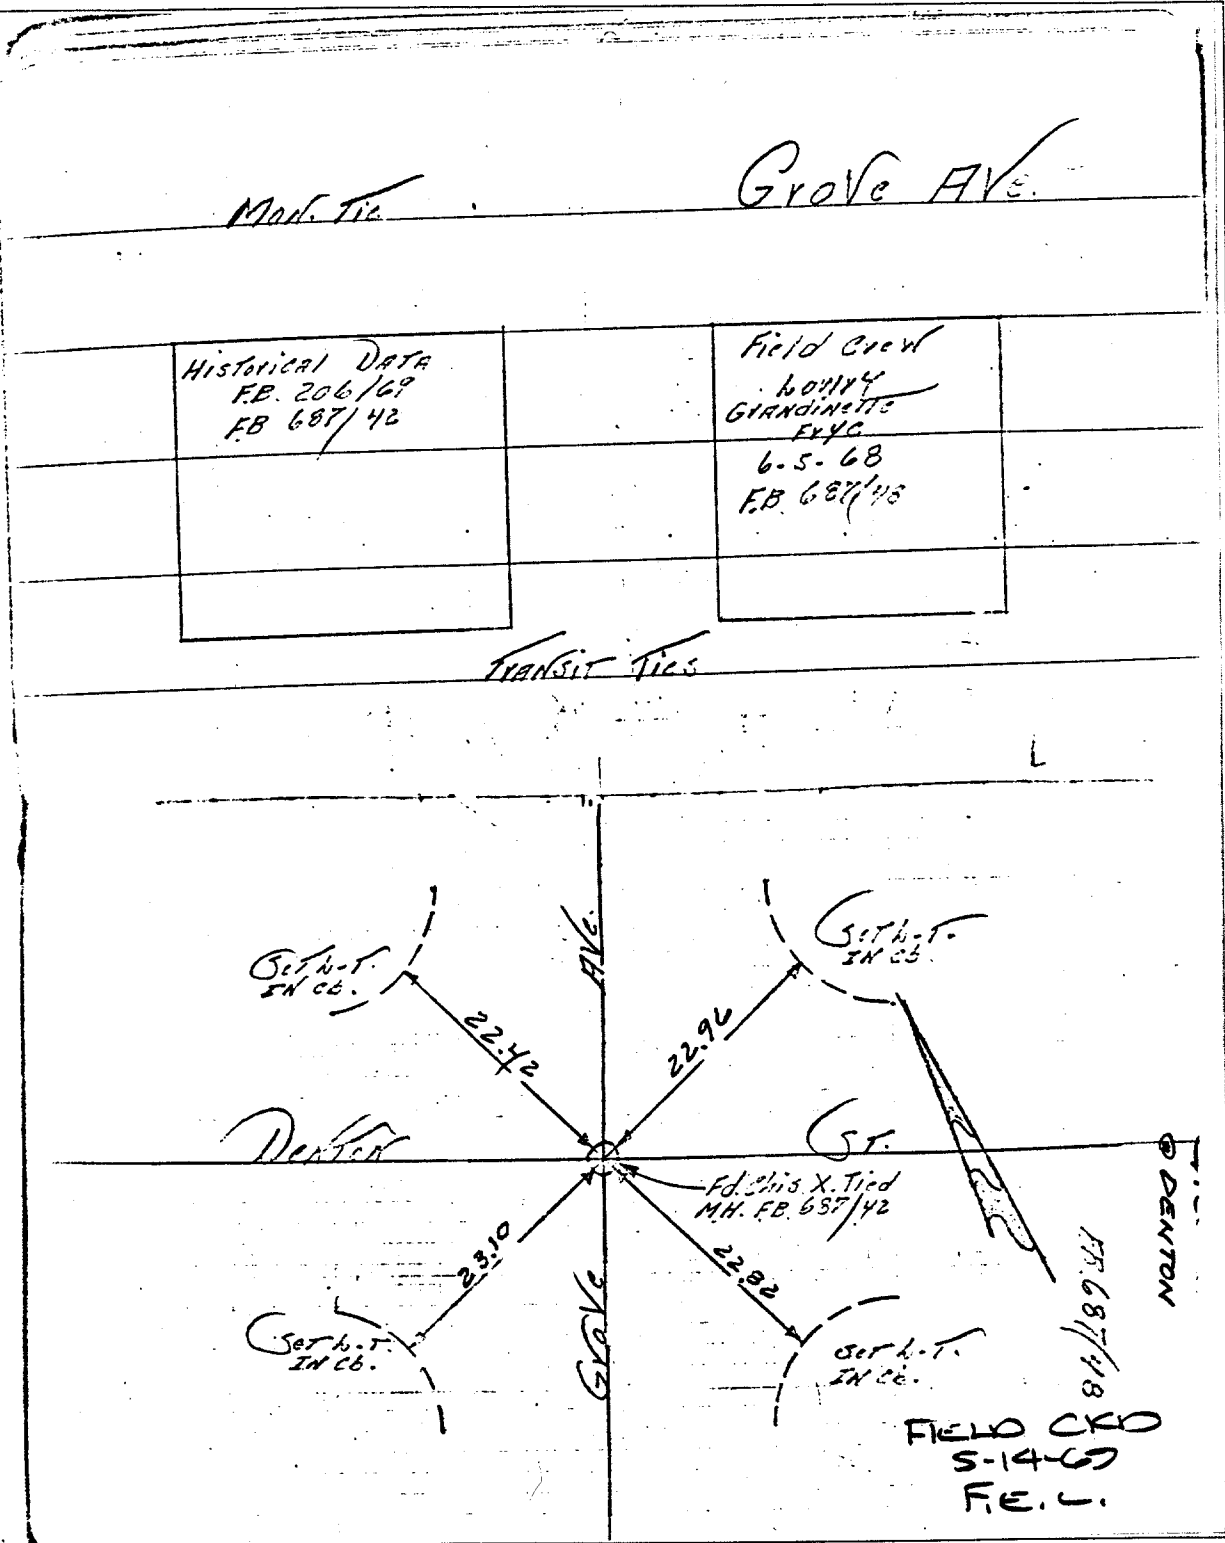 Mon. Tie
Grove Ave.
Historical Data
F.B. 206/69
F.B 687/42
Field Crew
Grandinette
Frye
6-5-68
F.B. 687/48
Transit Ties
Set L.T.
IN Cb.
Set L.T.
IN Cb.
Ave.
22.42
22.96
Denton
St.
Fd. Chis. X. Tied
M.H. F.B. 687/42
23.10
22.82
Grove
Set L.T.
IN Cb.
Set L.T.
IN Cb.
@ DENTON
F.B. 687/48
FIELD CKD
5-14-69
F.E.L.